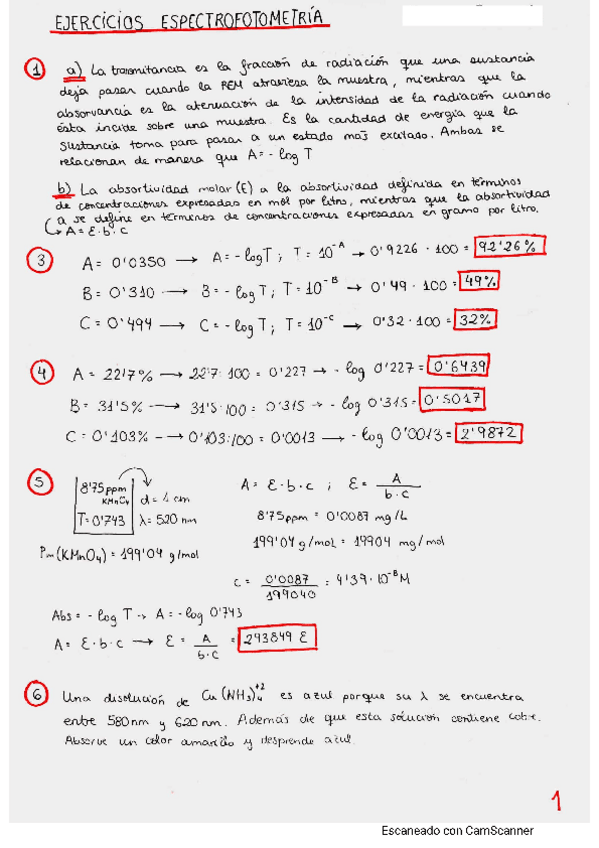 EJERCICIOS ESPECTROFOTOMETRÍA
1 a) La transmitancia es la fracción de radiación que una sustancia
deja pasar cuando la REM atraviesa la muestra, mientras que la
absorvancia es la atenuación de la intensidad de la radiación cuando
ésta incide sobre una muestra. Es la cantidad de energía que la
sustancia toma para pasar a un estado más excitado. Ambas se
relacionan de manera que A = - log T
b) La absortividad molar (ε) a la absortividad definida en términos
de concentraciones expresadas en mol por litro, mientras que la absortividad
a se define en términos de concentraciones expresadas en gramo por litro.
↳ A = ε·b·c
3 A = 0'0350 → A = - log T ; T = 10^-A → 0'9226 · 100 = 92'26%
B = 0'310 → B = - log T ; T = 10^-B → 0'49 · 100 = 49%
C = 0'494 → C = - log T ; T = 10^-C → 0'32 · 100 = 32%
4 A = 22'7% → 22'7 : 100 = 0'227 → - log 0'227 = 0'6439
B = 31'5% → 31'5 : 100 = 0'315 → - log 0'315 = 0'5017
C = 0'103% → 0'103 : 100 = 0'0013 → - log 0'0013 = 2'9872
5 8'75 ppm KMnO4 d = 1 cm
T = 0'743 λ = 520 nm
A = ε·b·c ; ε = A / b·c
8'75 ppm = 0'0087 mg/L
Pm (KMnO4) = 199'04 g/mol
199'04 g/mol = 19904 mg/mol
c = 0'0087 / 199040 = 4'39·10^-8 M
Abs = - log T → A = - log 0'743
A = ε·b·c → ε = A / b·c = 293849 ε
6 Una disolución de Cu(NH3)4^+2 es azul porque su λ se encuentra
entre 580 nm y 620 nm. Además de que esta solución contiene cobre.
Absorve un color amarillo y desprende azul.
1
Escaneado con CamScanner